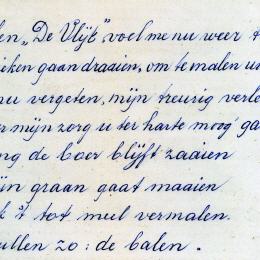 en „De Vlijt", voel me nu weer
ieken gaan draaien, om te malen
nu vergeten, mijn treurig verle
r mijn zorg u ter harte moog' ga
ng de boer blijft zaaien
ijn graan gaat maaien
k 't tot meel vermalen.
ullen zo: de balen.